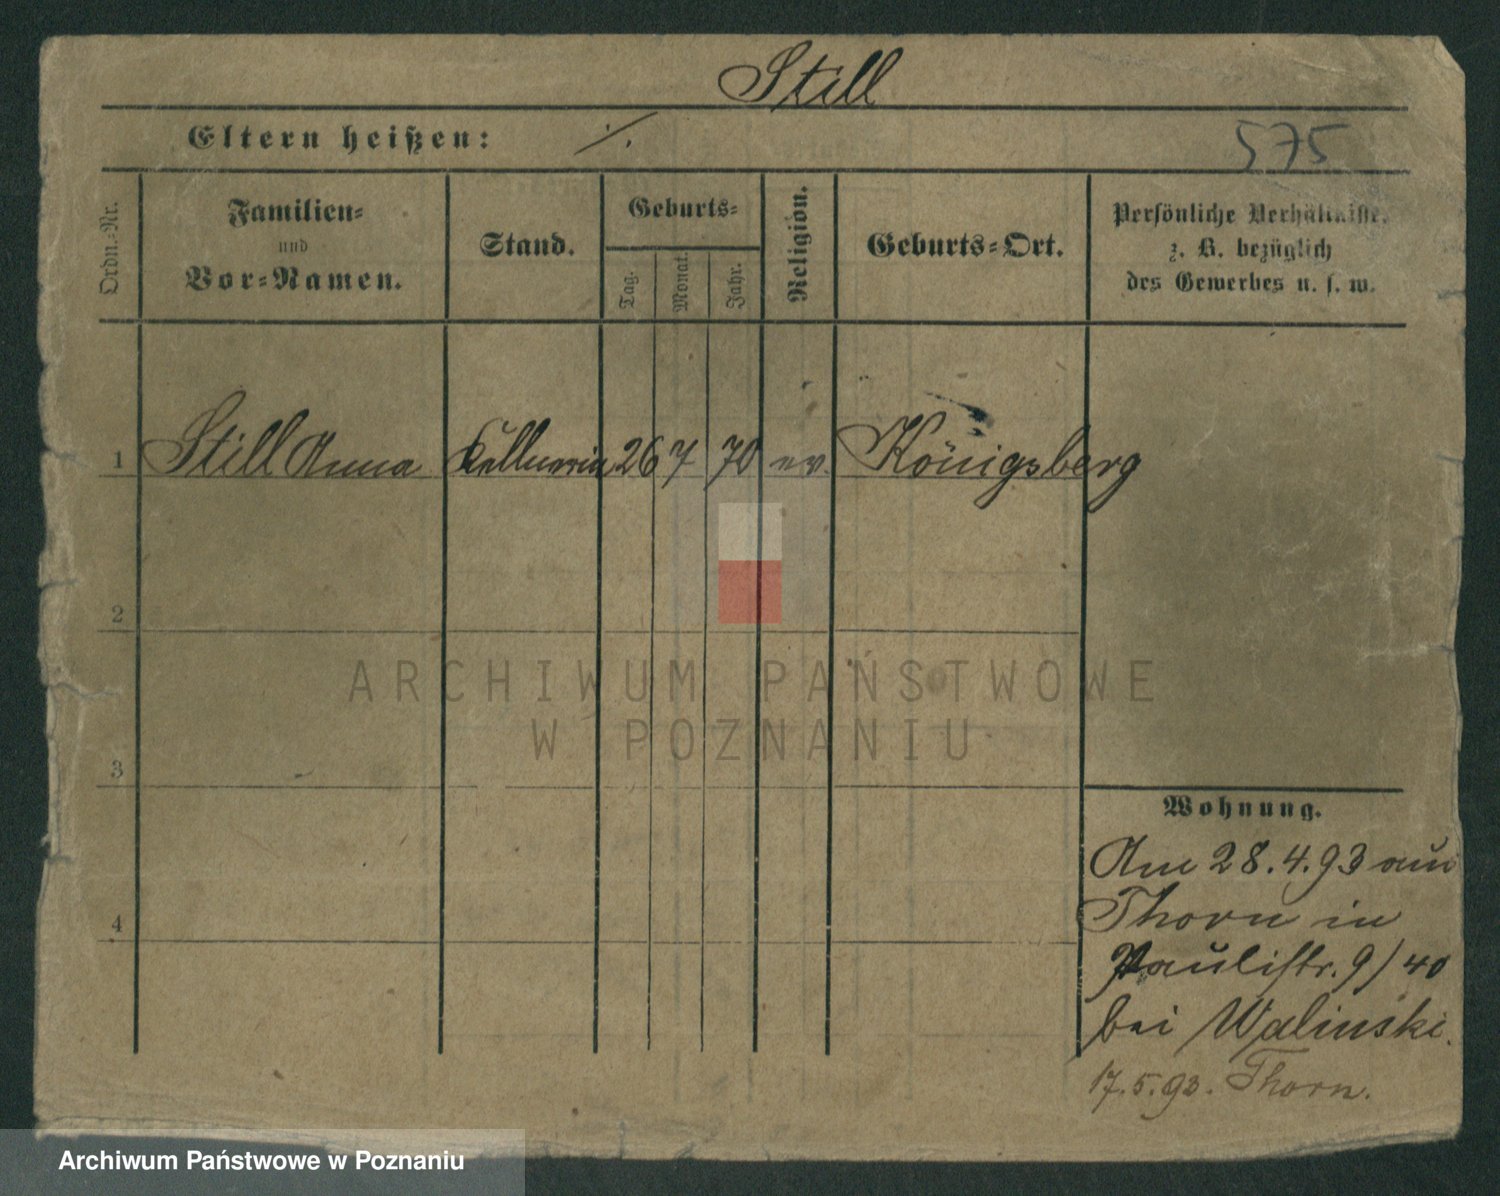 Still
Eltern heißen: ·/.
575
Ordn.-Nr.
Familien-
und
Vor-Namen.
Stand.
Geburts-
Tag.
Monat.
Jahr.
Religion.
Geburts-Ort.
Persönliche Verhältnisse.
z. B. bezüglich
des Gewerbes u. s. w.
1 Still Anna Kellnerin 26 7 70 ev. Königsberg
2
3
4
Wohnung.
Am 28.4.93 aus
Thorn in
Paulistr. 9/40
bei Walinski.
17.5.93. Thorn.
ARCHIWUM PAŃSTWOWE
W POZNANIU
Archiwum Państwowe w Poznaniu